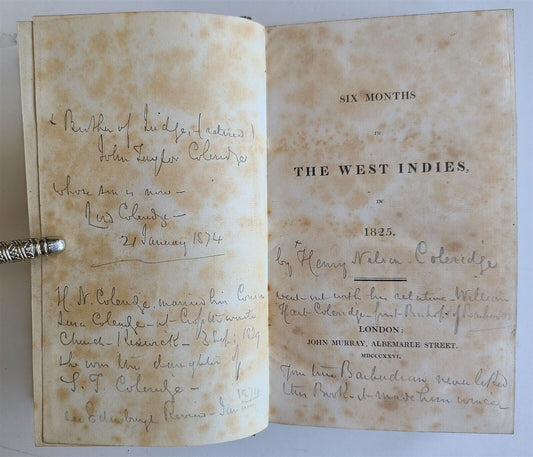 + Brother of Judge, (retired)
John Taylor Coleridge
whose son is now —
Lord Coleridge —
21 January 1874
H. N. Coleridge, married his Cousin
Sara Coleridge — at Crosthwaite
Church — Keswick — 3 Sep: 1829
she was the daughter of
S. T. Coleridge —
see Edinburgh Review — Jan 1874
SIX MONTHS
IN
THE WEST INDIES,
IN
1825.
by + Henry Nelson Coleridge
went out with his relative William
Hart Coleridge first Bishop of Barbados
LONDON:
JOHN MURRAY, ALBEMARLE STREET.
MDCCCXXVI.
true Barbadian never liked
this Book — it made him